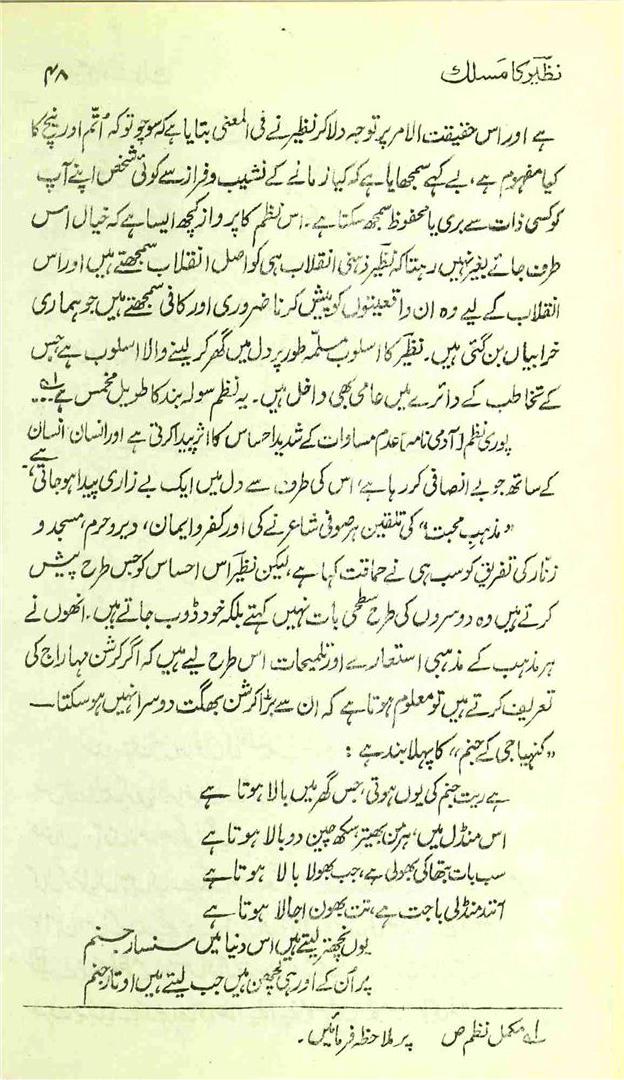 نظیر کا مسلک ۴۸
ہے اور اس حقیقت الامر پر توجہ دلا کر نظیر نے فی المعنی بتایا ہے کہ سوچو تو کہ اُتّم اور نیچ کا
کیا مفہوم ہے، بے کہے سمجھایا ہے کہ کیا زمانے کے نشیب و فراز سے کوئی شخص اپنے آپ
کو کسی ذات سے بری یا محفوظ سمجھ سکتا ہے۔ اس نظم کا پرواز کچھ ایسا ہے کہ خیال اس
طرف جائے بغیر نہیں رہتا کہ نظیر ذہنی انقلاب ہی کو اصل انقلاب سمجھتے ہیں اور اس
انقلاب کے لیے وہ ان واقعیتوں کو پیش کرنا ضروری اور کافی سمجھتے ہیں جو ہماری
خرابیاں بن گئی ہیں۔ نظیر کا اسلوب مسلّمہ طور پر دل میں گھر کر لینے والا اسلوب ہے جس
کے تخاطب کے دائرے میں عامی بھی داخل ہیں۔ یہ نظم سولہ بند کا طویل مخمس ہے لہ
پوری نظم (آدمی نامہ) عدم مساوات کے شدید احساس کا اثر پیدا کرتی ہے اور انسان انسان
کے ساتھ جو بے انصافی کر رہا ہے، اس کی طرف سے دل میں ایک بے زاری پیدا ہو جاتی ہے۔
“مذہبِ محبت” کی تلقین ہر صوفی شاعر نے کی اور کفر و ایمان، دیر و حرم، مسجد و
زنّار کی تفریق کو سب ہی نے حماقت کہا ہے، لیکن نظیر اس احساس کو جس طرح پیش
کرتے ہیں وہ دوسروں کی طرح سطحی بات نہیں کہتے بلکہ خود ڈوب جاتے ہیں۔ انھوں نے
ہر مذہب کے مذہبی استعارے اور تلمیحات اس طرح لیے ہیں کہ اگر کرشن مہاراج کی
تعریف کرتے ہیں تو معلوم ہوتا ہے کہ ان سے بڑا کرشن بھگت دوسرا نہیں ہو سکتا —
“کنہیا جی کے جنم” کا پہلا بند ہے :
ہے ریت جنم کی یوں ہوتی، جس گھر میں بالا ہوتا ہے
اس منڈل میں، ہر من بھیتر سکھ چین دوبالا ہوتا ہے
سب بات بتھا کی بھولی ہے، جب بھولا بالا ہوتا ہے
آنند منڈلی باجت ہے، تت بھون اجالا ہوتا ہے
یوں نچھتر لیتے ہیں اس دنیا میں سنسار جنم
پر اُن کے اور ہی لچھن ہیں جب لیتے ہیں اوتار جنم
لہ مکمل نظم ص پر ملاحظہ فرمائیں۔